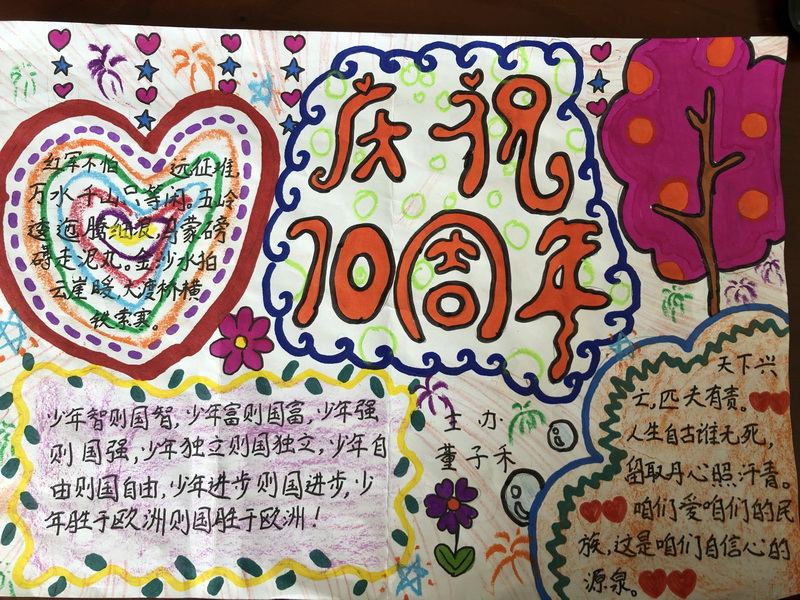 庆祝
10周年
红军不怕远征难,
万水千山只等闲。五岭
逶迤腾细浪,乌蒙磅
礴走泥丸。金沙水拍
云崖暖,大渡桥横
铁索寒。
少年智则国智,少年富则国富,少年强
则国强,少年独立则国独立,少年自
由则国自由,少年进步则国进步,少
年胜于欧洲则国胜于欧洲!
主办
董子禾
天下兴
亡,匹夫有责。
人生自古谁无死,
留取丹心照汗青。
咱们爱咱们的民
族,这是咱们自信心的
源泉。